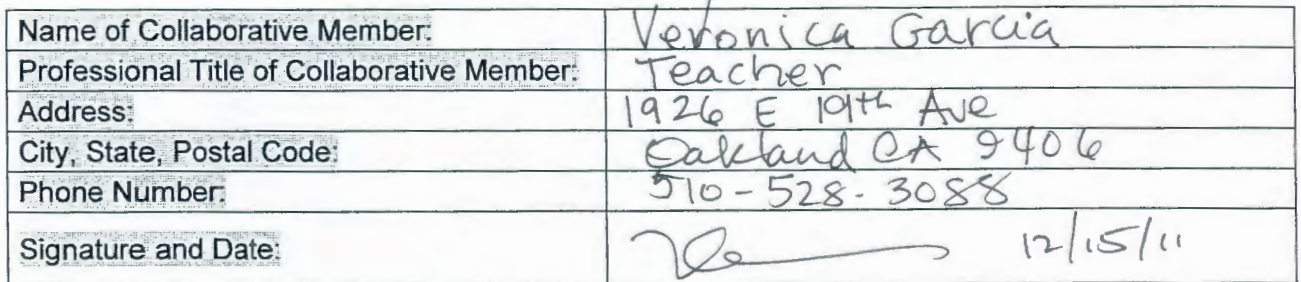 Name of Collaborative Member: Veronica Garcia
Professional Title of Collaborative Member: Teacher
Address: 1926 E 19th Ave
City, State, Postal Code: Oakland CA 9406
Phone Number: 510-528-3088
Signature and Date: 12/15/11